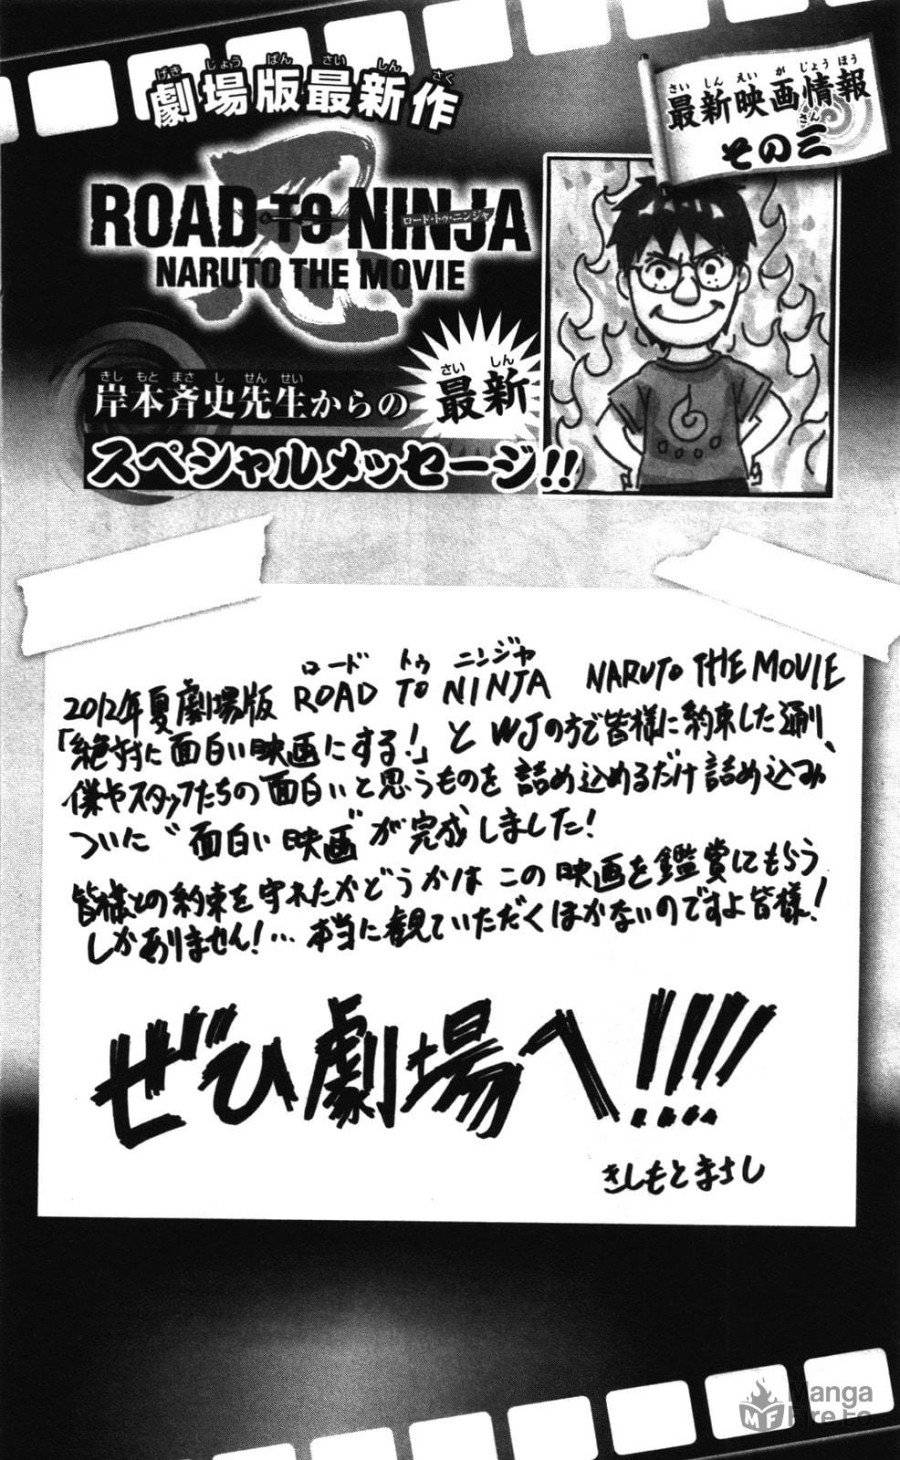 劇場版最新作
げきじょうばんさいしんさく
最新映画情報
さいしんえいがじょうほう
その三
さん
忍
ROAD TO NINJA
ロード・トゥ・ニンジャ
NARUTO THE MOVIE
岸本斉史先生からの
きしもとまさしせんせい
最新
さいしん
スペシャルメッセージ!!
ロード トゥ ニンジャ
2012年夏劇場版 ROAD TO NINJA NARUTO THE MOVIE
「絶対に面白い映画にする!」と WJの方で皆様に約束した通り、
僕やスタッフたちの面白いと思うものを 詰め込めるだけ詰め込み
ついに“面白い映画”が完成しました!
皆様との約束を守れたかどうかは この映画を鑑賞にもらう
しかありません!… 本当に観ていただくほかないのですよ皆様!
ぜひ劇場へ!!!!
きしもとまさし
MF
Manga
Fire.to